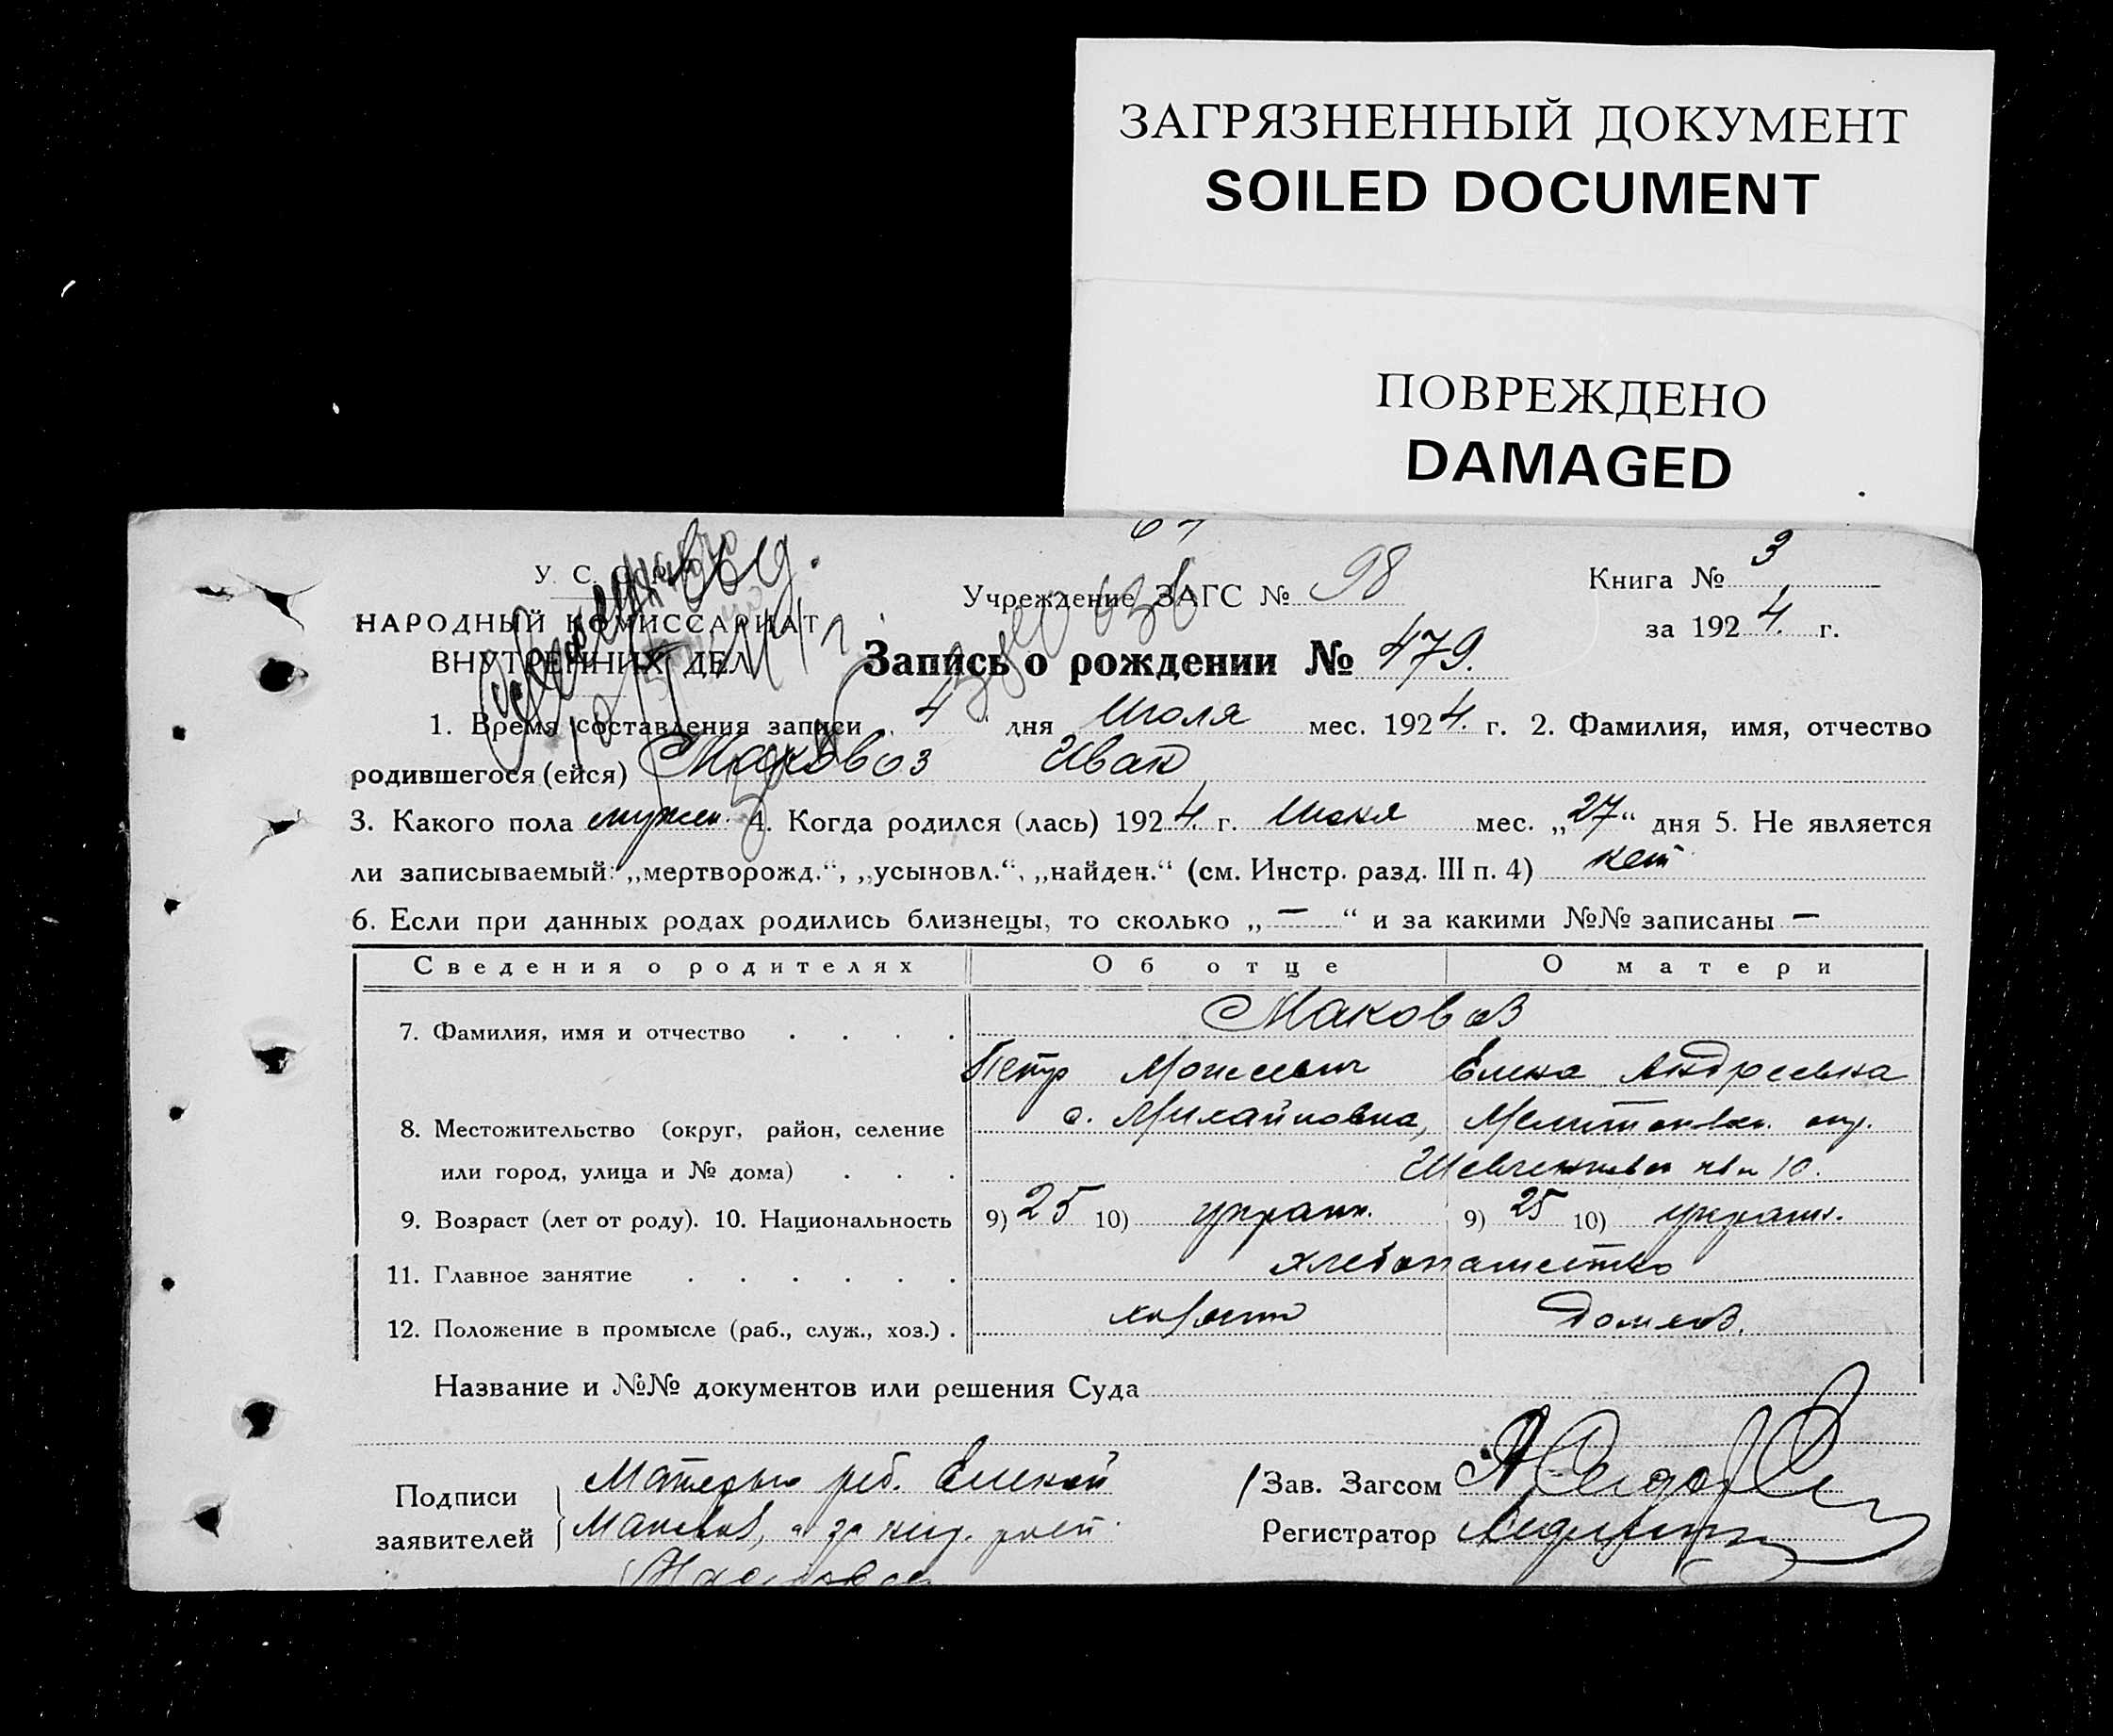 ЗАГРЯЗНЕННЫЙ ДОКУМЕНТ
SOILED DOCUMENT
ПОВРЕЖДЕНО
DAMAGED
У. С. С.
Учреждение ЗАГС № 98
Книга № 3
НАРОДНЫЙ КОМИССАРИАТ
ВНУТРЕННИХ ДЕЛ
за 1924. г.
Запись о рождении № 479.
1. Время составления записи 4 дня Июля мес. 1924. г. 2. Фамилия, имя, отчество
родившегося (ейся) Маковоз Иван
3. Какого пола мужск. 4. Когда родился (лась) 1924. г. Июня мес. „27“ дня 5. Не является
ли записываемый: „мертворожд.“, „усыновл.“, „найден.“ (см. Инстр. разд. III п. 4) нет
6. Если при данных родах родились близнецы, то сколько „—“ и за какими №№ записаны —
Сведения о родителях Об отце О матери
7. Фамилия, имя и отчество Маковоз
Петр Елена Андреевна
8. Местожительство (округ, район, селение с. Михайловка, Мелитопольск. окр.
или город, улица и № дома) 10.
9. Возраст (лет от роду). 10. Национальность 9) 25 10) украин. 9) 25 10) украин.
11. Главное занятие хлебопашество
12. Положение в промысле (раб., служ., хоз.) хозяин
Название и №№ документов или решения Суда
Подписи заявителей Матерью реб. Еленой
Маковоз, а за
Зав. Загсом
Регистратор